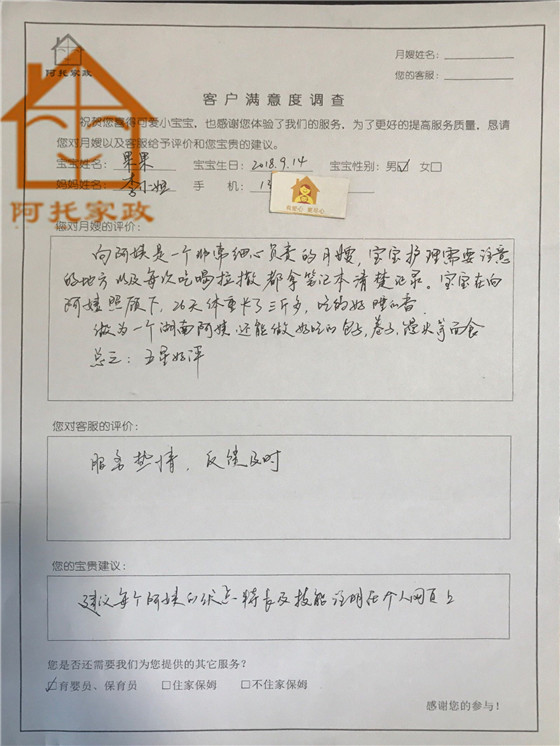 阿托家政
月嫂姓名:
您的客服:
客户满意度调查
祝贺您喜得可爱小宝宝,也感谢您体验了我们的服务,为了更好的提高服务质量,恳请
您对月嫂以及客服给予评价和您宝贵的建议。
宝宝姓名:果果 宝宝生日:2018.9.14 宝宝性别:男☑ 女□
妈妈姓名:李小姐 手 机:1
阿托家政
您对月嫂的评价:
向阿姨是一个非常细心负责的月嫂,宝宝护理需要注意
的地方以及每次吃喝拉撒都拿笔记本清楚记录。宝宝在向
阿姨照顾下,26天体重长了三斤多,吃的好睡的香。
做为一个湖南阿姨还能做好吃的包子,卷子,馒头等面食
总之:五星好评
您对客服的评价:
服务热情,反馈及时
您的宝贵建议:
建议每个阿姨的优点特长及技能注明在个人网页上
您是否还需要我们为您提供的其它服务?
☑育婴员、保育员 □住家保姆 □不住家保姆
感谢您的参与!